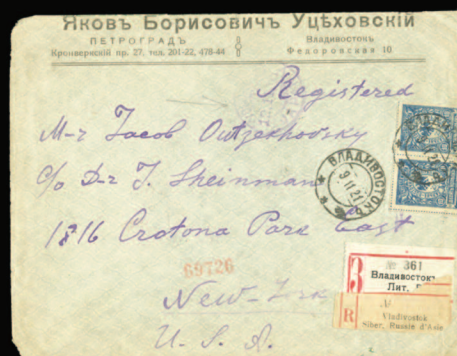 Яковъ Борисовичъ Уцѣховскій
ПЕТРОГРАДЪ
Кронверкскій пр. 27, тел. 201-22, 478-44
Владивостокъ
Федоровская 10
Registered
M-r Jacob Outzekhovsky
c/o D-r J. Sheinman
1816 Crotona Park East
ВЛАДИВОСТОКЪ
9 11 21
69726
New-York
U. S. A.
№ 361
Владивостокъ
Лит.
R
№
Vladivostok
Siber. Russie d'Asie